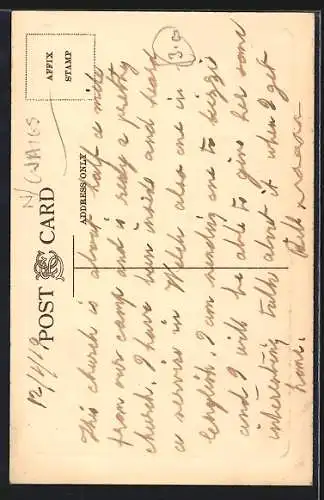 12/4/18
POST CARD
AFFIX
STAMP
ADDRESS ONLY
N/WALES
3.0
This church is about half a mile
from our camp and is really a pretty
church. I have been inside and heard
a service in Welsh also one in
English. I am sending one to
and I will be able to give her some
interesting talk about it when I get
home. Bill xxxxxx